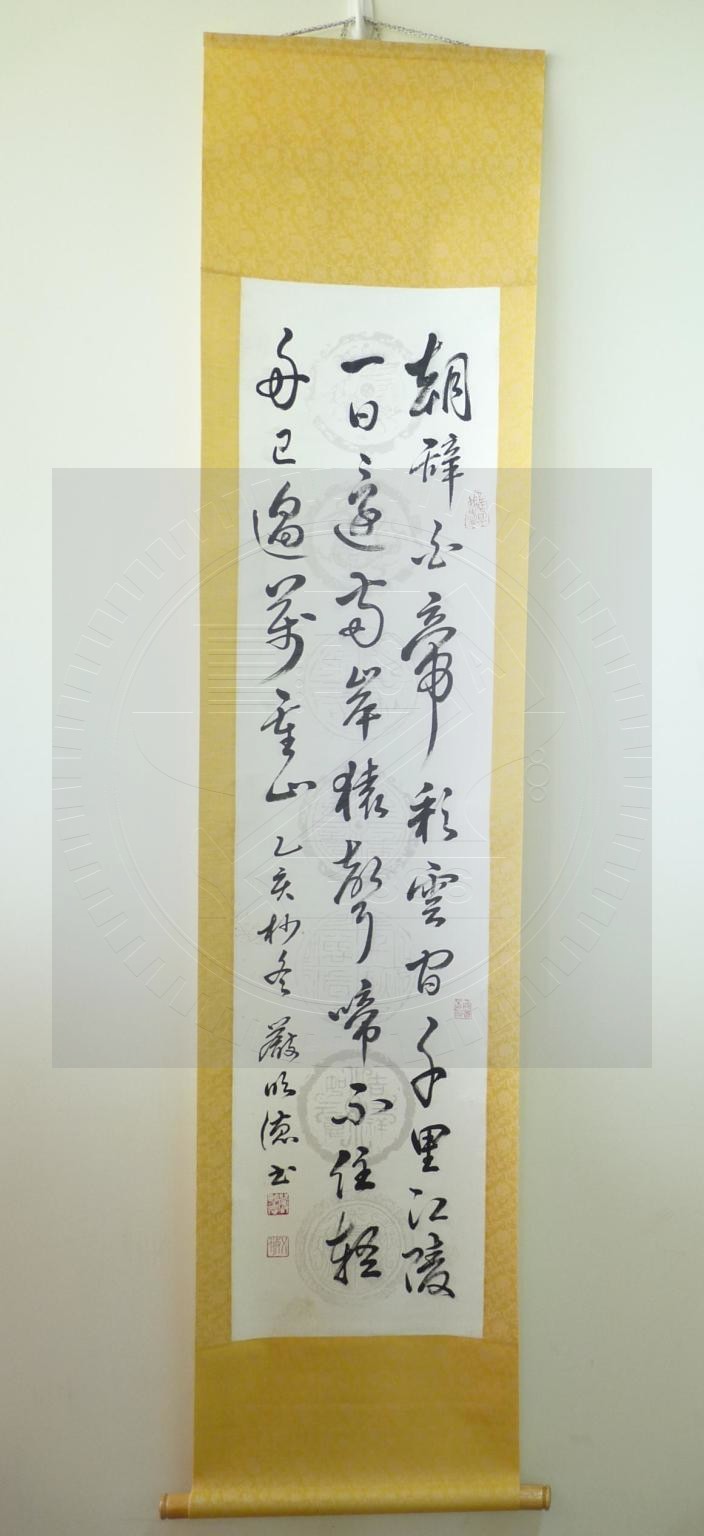 朝辭白帝彩雲間千里江陵
一日〻還兩岸猿聲啼不住輕
舟已過萬重山乙亥杪冬嚴明德書